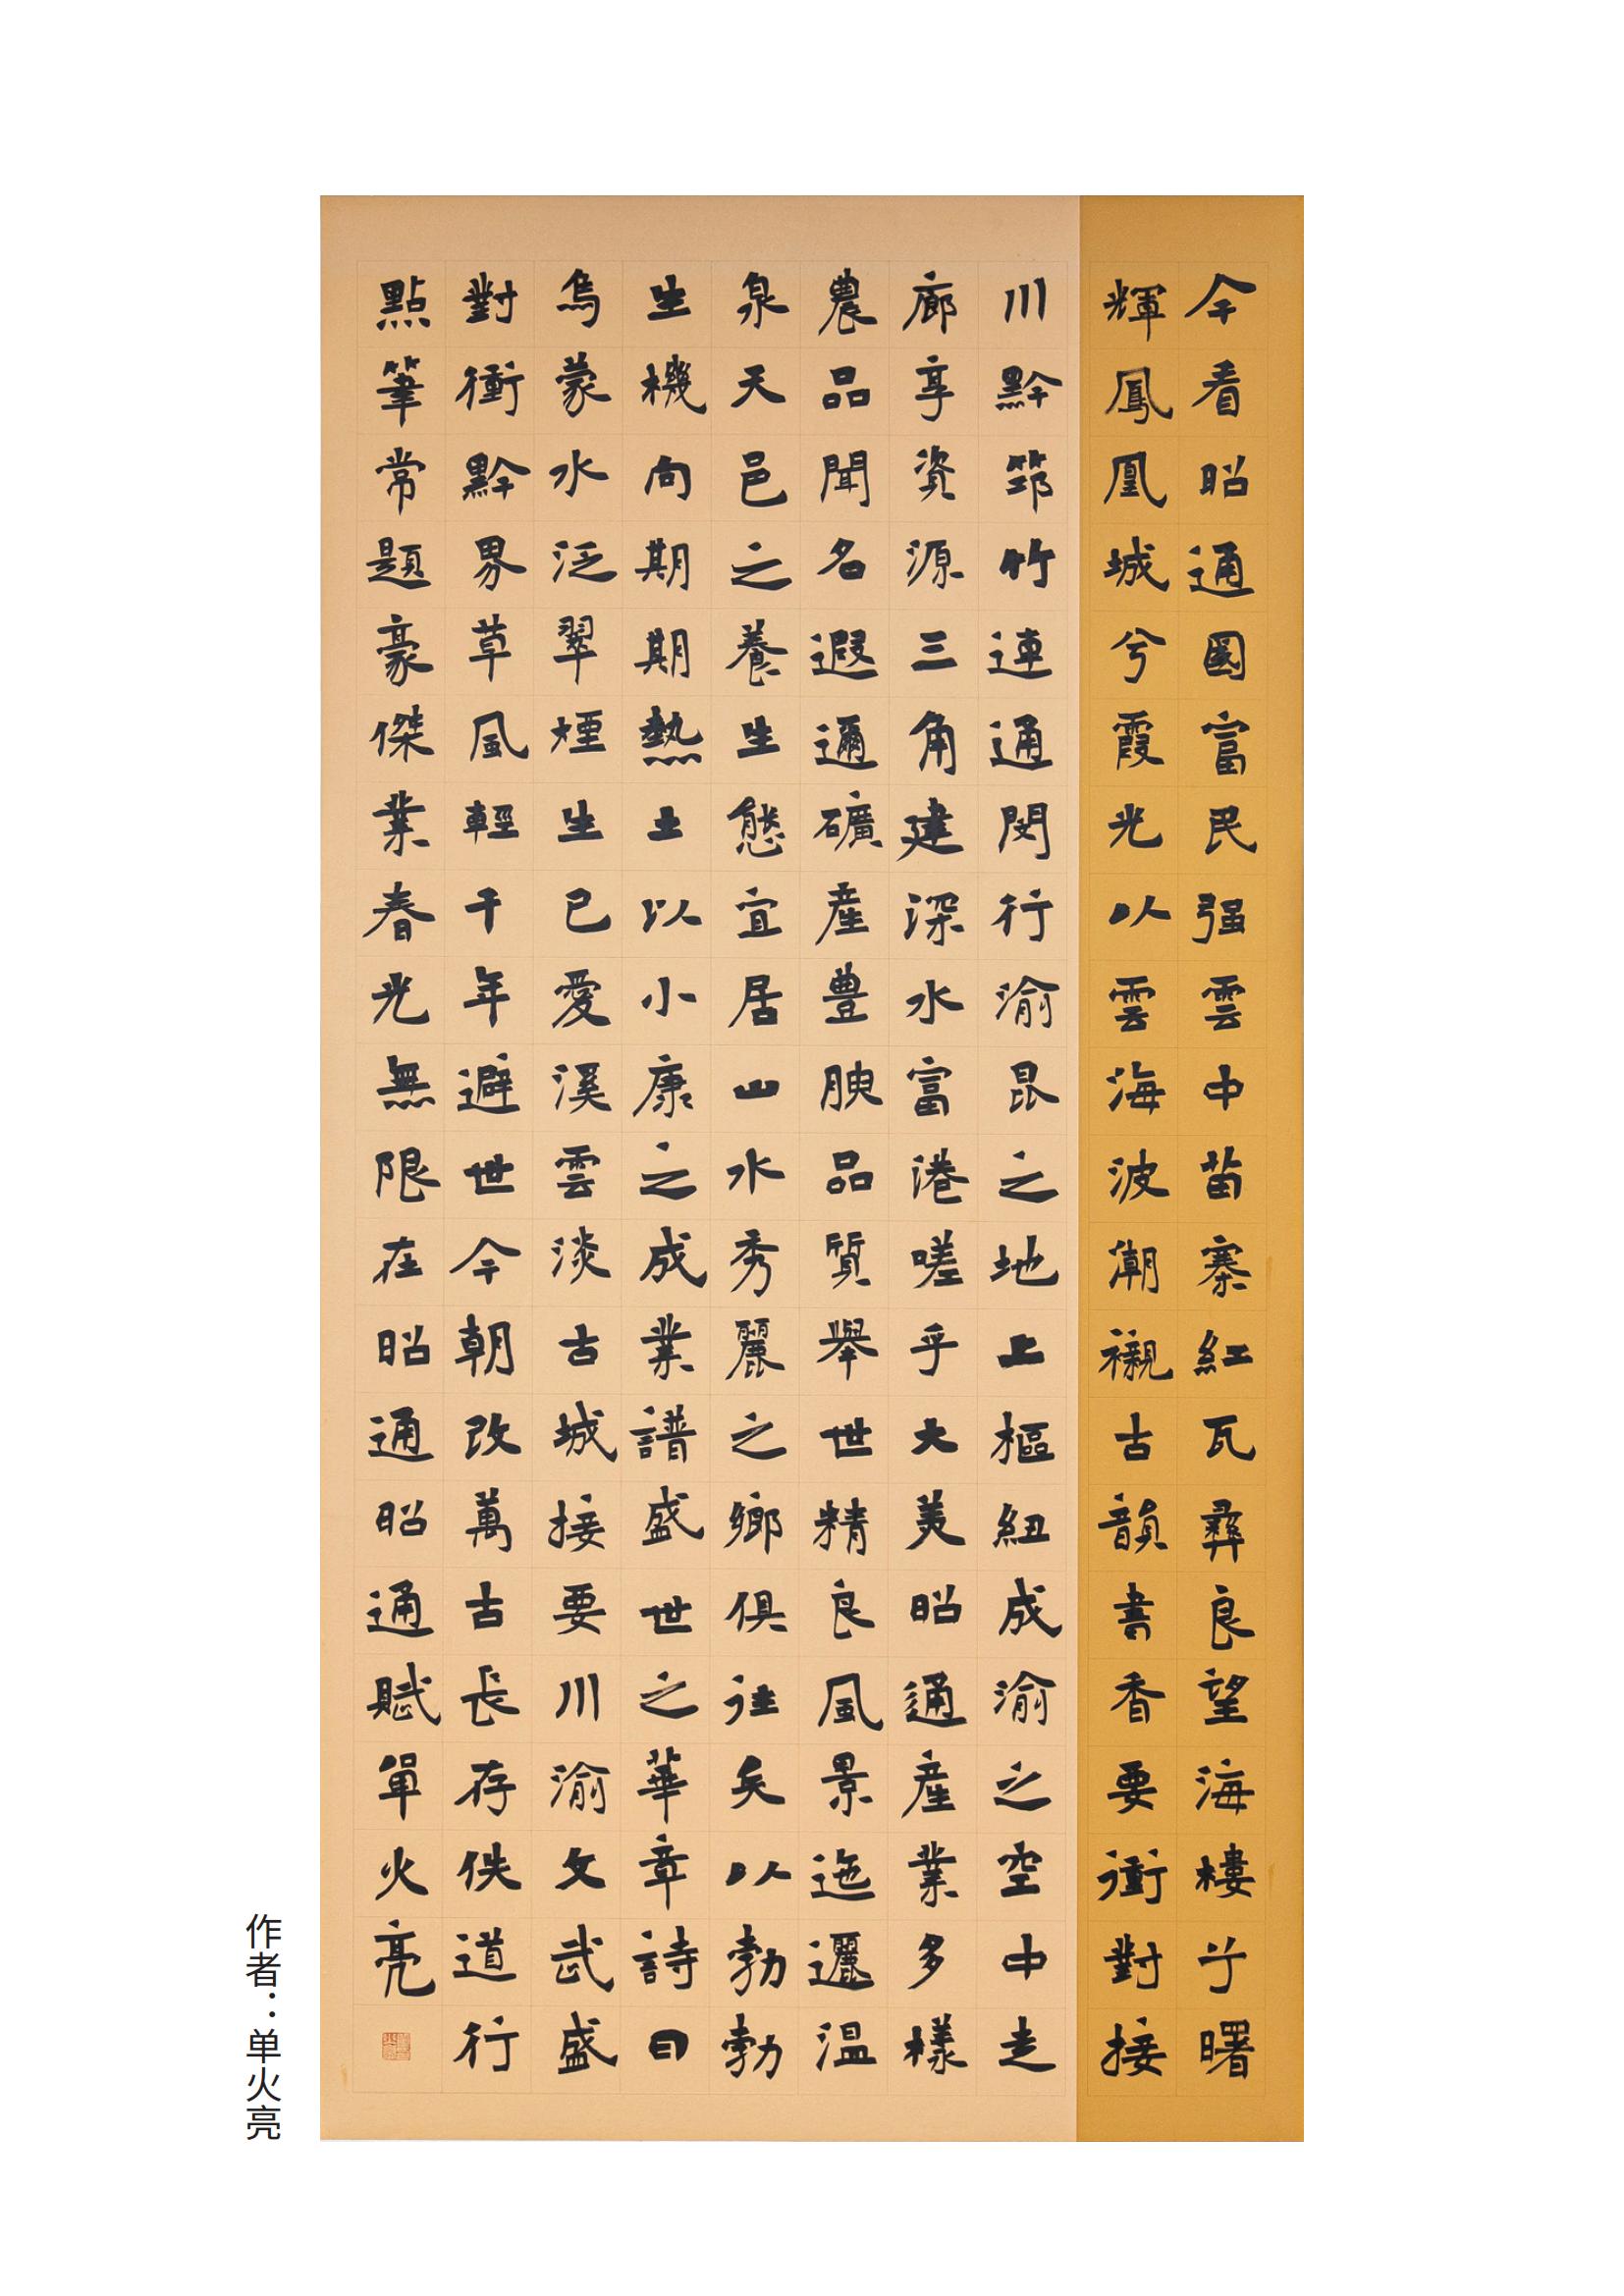 今看昭通國富民强雲中苗寨紅瓦彝良望海樓兮曙
輝鳳凰城兮霞光以雲海波潮襯古韻書香要衝對接
川黔筇竹連通閔行渝昆之地上樞紐成渝之空中走
廊享資源三角建深水富港嗟乎大美昭通產業多樣
農品聞名遐邇礦產豊腴品質舉世精良風景迤邐温
泉天邑之養生態宜居山水秀麗之鄉俱往矣以勃勃
生機向期期熱土以小康之成業譜盛世之華章詩曰
烏蒙水泛翠煙生已愛溪雲淡古城接要川渝文武盛
對衝黔界草風輕千年避世今朝改萬古長存佚道行
點筆常題豪傑業春光無限在昭通昭通賦單火亮
作者：单火亮